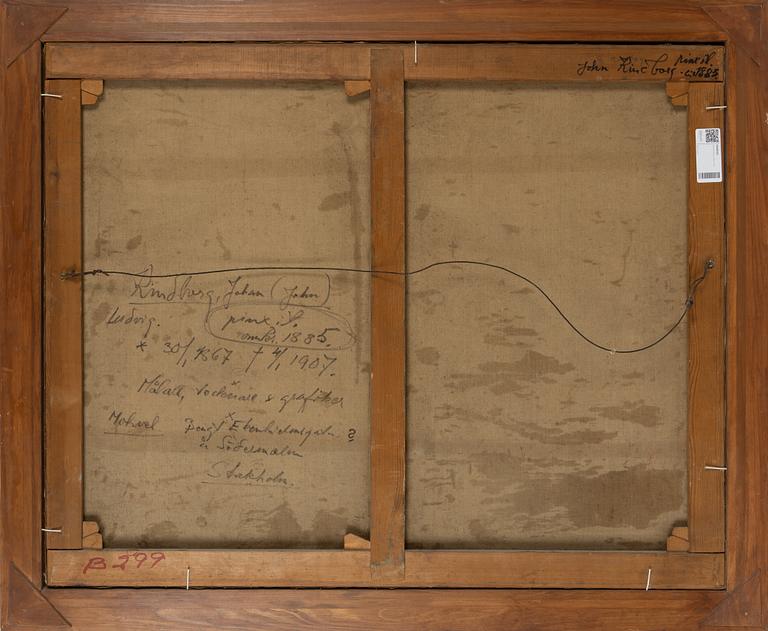 John Kindborg pinxit.
c. 1885.
Kindborg, Johan (John)
Ludvig. pinx. it.
omkr. 1885.
* 30/1 1867 † 4/1 1907.
Målare, tecknare & grafiker
Motivet ?
å Södermalm
Stockholm.
B 299